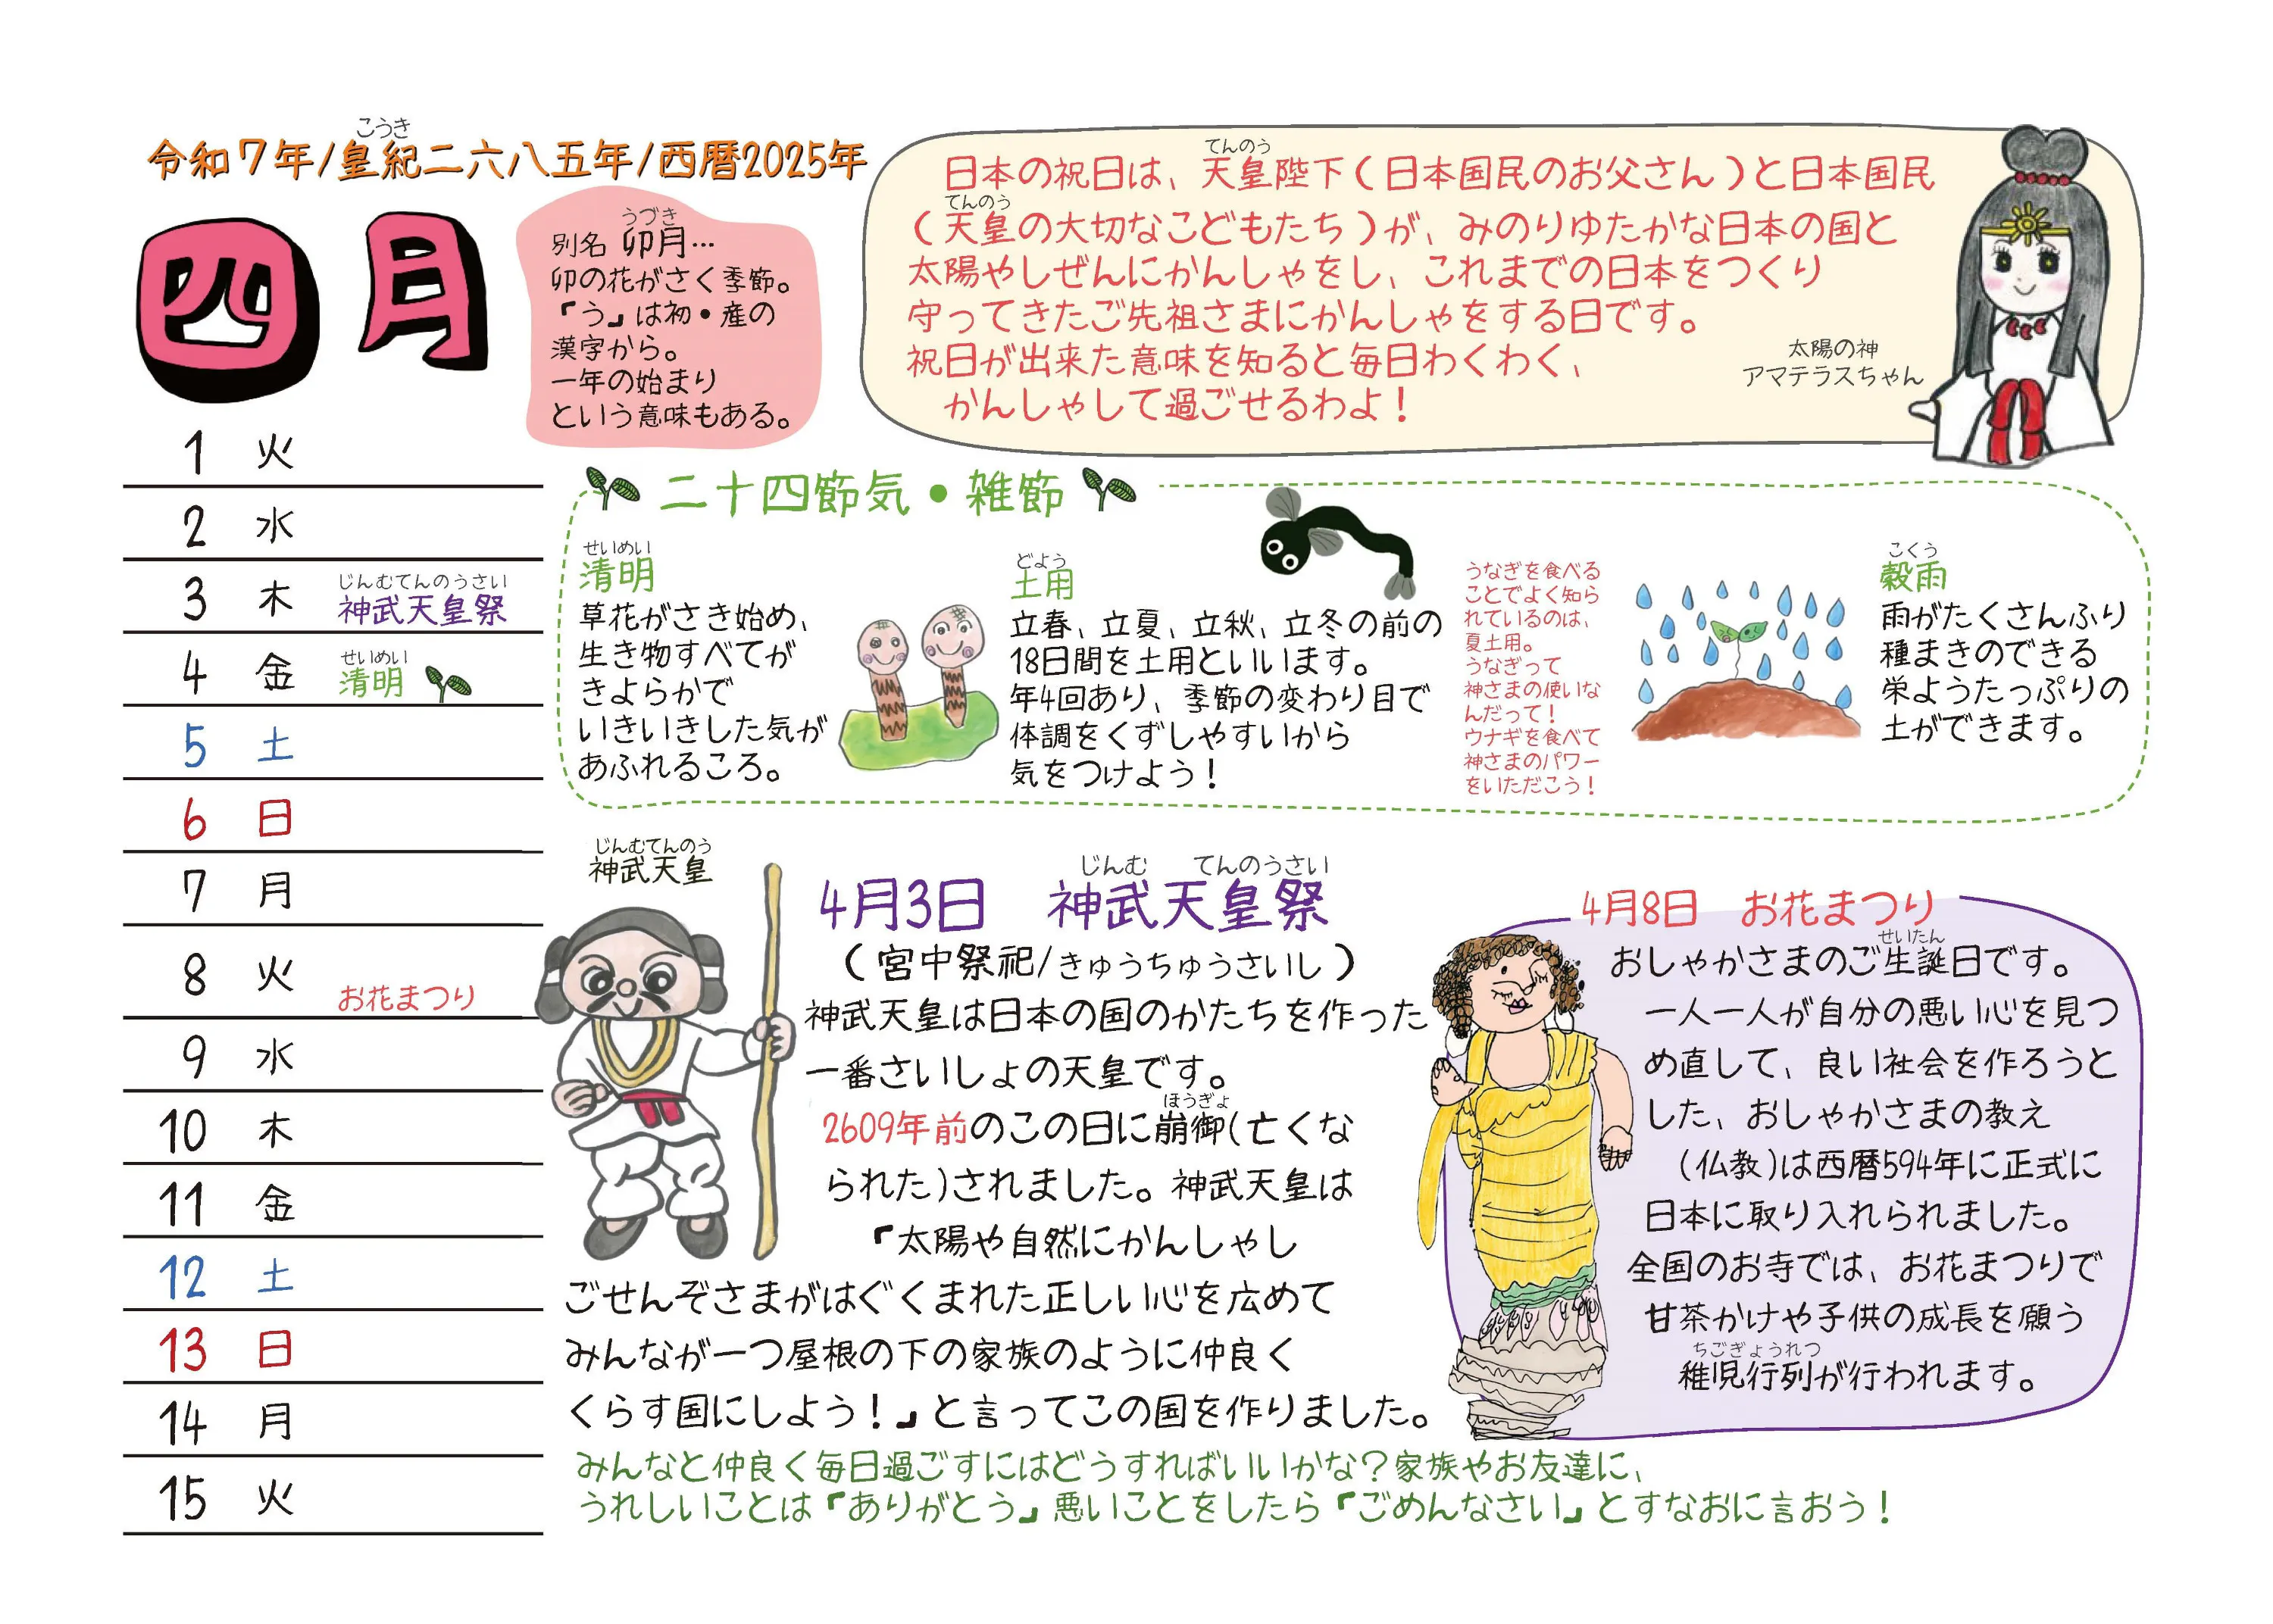 こうき
令和7年/皇紀二六八五年/西暦2025年
四月
うづき
別名 卯月…
卯の花がさく季節。
『う』は初・産の
漢字から。
一年の始まり
という意味もある。
てんのう
日本の祝日は、天皇陛下(日本国民のお父さん)と日本国民
てんのう
(天皇の大切なこどもたち)が、みのりゆたかな日本の国と
太陽やしぜんにかんしゃをし、これまでの日本をつくり
守ってきたご先祖さまにかんしゃをする日です。
祝日が出来た意味を知ると毎日わくわく、
かんしゃして過ごせるわよ!
太陽の神
アマテラスちゃん
1 火
2 水
じんむてんのうさい
3 木 神武天皇祭
せいめい
4 金 清明
5 土
6 日
7 月
8 火 お花まつり
9 水
10 木
11 金
12 土
13 日
14 月
15 火
二十四節気・雑節
せいめい
清明
草花がさき始め、
生き物すべてが
きよらかで
いきいきした気が
あふれるころ。
どよう
土用
立春、立夏、立秋、立冬の前の
18日間を土用といいます。
年4回あり、季節の変わり目で
体調をくずしやすいから
気をつけよう!
うなぎを食べる
ことでよく知ら
れているのは、
夏土用。
うなぎって
神さまの使いな
んだって!
ウナギを食べて
神さまのパワー
をいただこう!
こくう
穀雨
雨がたくさんふり
種まきのできる
栄ようたっぷりの
土ができます。
じんむてんのう
神武天皇
じんむ てんのうさい
4月3日 神武天皇祭
(宮中祭祀/きゅうちゅうさいし)
神武天皇は日本の国のかたちを作った
一番さいしょの天皇です。
ほうぎょ
2609年前のこの日に崩御(亡くな
られた)されました。神武天皇は
『太陽や自然にかんしゃし
ごせんぞさまがはぐくまれた正しい心を広めて
みんなが一つ屋根の下の家族のように仲良く
くらす国にしよう!』と言ってこの国を作りました。
みんなと仲良く毎日過ごすにはどうすればいいかな?家族やお友達に、
うれしいことは『ありがとう』悪いことをしたら『ごめんなさい』とすなおに言おう!
4月8日 お花まつり
せいたん
おしゃかさまのご生誕日です。
一人一人が自分の悪い心を見つ
め直して、良い社会を作ろうと
した、おしゃかさまの教え
(仏教)は西暦594年に正式に
日本に取り入れられました。
全国のお寺では、お花まつりで
甘茶かけや子供の成長を願う
ちごぎょうれつ
稚児行列が行われます。